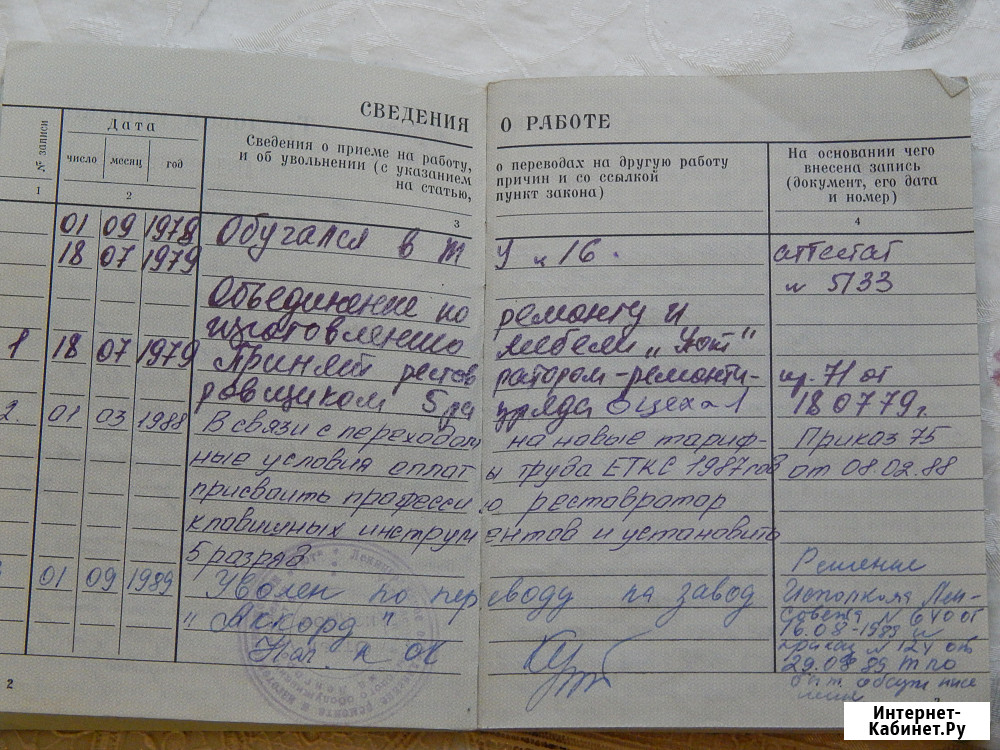 СВЕДЕНИЯ О РАБОТЕ
№ записи
Дата
число месяц год
Сведения о приеме на работу, о переводах на другую работу
и об увольнении (с указанием причин и со ссылкой
на статью, пункт закона)
На основании чего
внесена запись
(документ, его дата
и номер)
1 2 3 4
01 09 1978 Обучался в ТУ № 16. аттестат
18 07 1979 № 5133
Объединение по ремонту и
изготовлению мебели „Уют"
1 18 07 1979 Принят реставратором-ремонти- пр. 71 от
ровщиком 5 разряда в цех №1 180779г.
2. 01 03 1988 В связи с переходом на новые тариф- Приказ 75
ные условия оплаты труда ЕТКС 1987 от 08.02.88
присвоить професси ю реставратор
клавишных инструментов и установить
5 разряд
01 09 1989 Уволен по переводу на завод
„Аккорд"
Нач. к ОК
Решение
Исполкома Лен-
Совета № 640 от
16.08-1989 и
приказ № 124 от
29.08 89 ТПО
2
Интернет-
Кабинет.Ру